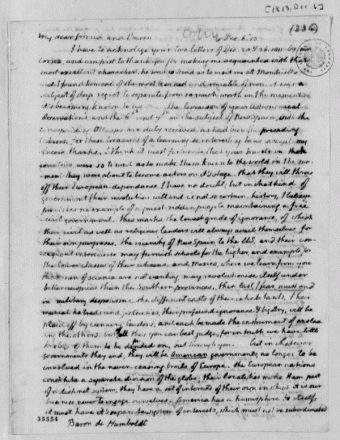 (236)
My dear friend and Baron
Dec. 6. 13
I have to acknolege your two letters of Dec. 20. & 26. 1811. by Mr
Correa, and am first to thank you for making me acquainted with that
most excellent character. he was so kind as to visit me at Monticello
and I found him one of the most learned and amiable of men. it was a
subject of deep regret to separate from so much worth in the moment of
it's becoming known to us. the
and the
have been duly received, as had been the preceding
for these treasures of a learning so interesting to us accept my
sincere thanks. I think it most fortunate that your travels in those
countries were so timed as to make them known to the world in the mo-
ment they were about to become actors on it's stage. that they will throw
off their European dependance I have no doubt; but in what kind of
government their revolution will end is not so certain. history, I believe
furnishes no example of a priest-ridden people maintaining a free
civil government. this marks the lowest grade of ignorance, of which
their civil as well as religious leaders will always avail themselves for
their own purposes. the vicinity of New Spain to the US. and their con-
sequent intercourse may furnish schools for the higher, and example for
the lower classes of their citizens. and Mexico, where we learn from you
that men of science are not wanting, may revolutionise itself under
better auspices than the Southern provinces. these last, I fear, must end
in military despotisms. the different casts of their inhabitants, their
mutual hatreds and jealousies, their profound ignorance & bigotry, will be
played off by cunning leaders, and each be made the instrument of enslaving
the others. but of all this you can best judge, for in truth we have little
knolege of them to be depended on, but through you. but in whatever
governments they end, they will be American governments, no longer to be
involved in the never-ceasing broils of Europe. the European nations
constitute a separate division of the globe; their localities make them part
of a distinct system; they have a set of interests of their own in which it is our
business never to engage ourselves. America has a hemisphere to itself:
it must have it's separate system of interests, which must not be subordinated
Baron de Humboldt